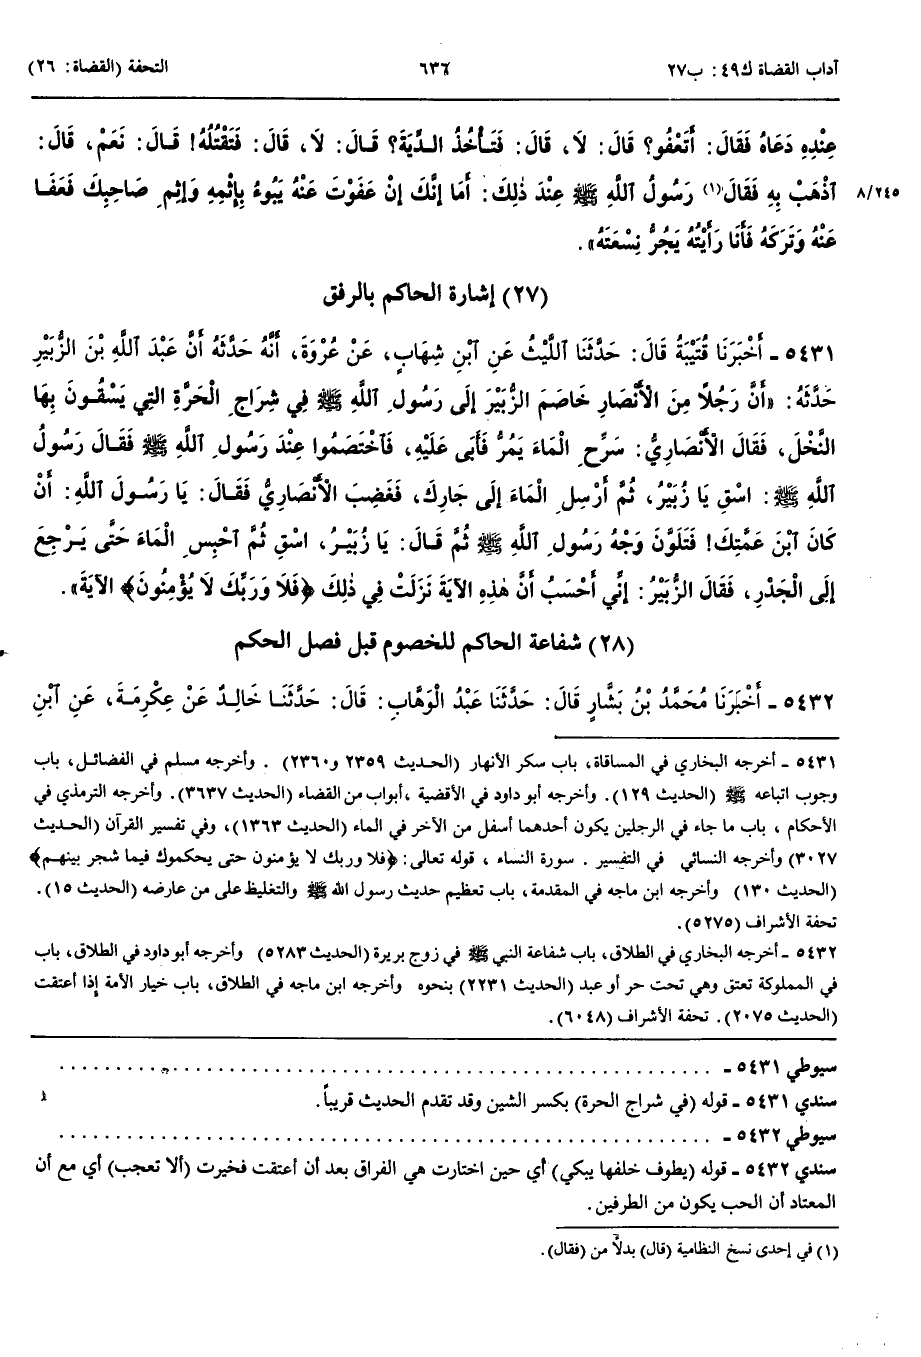 آداب القضاة ك٤٩: ب٢٧ ٦٣٦ التحفة (القضاة: ٢٦)
عِنْدِهِ دَعَاهُ فَقَالَ: أَتَعْفُو؟ قَالَ: لَا، قَالَ: فَتَأْخُذُ الدِّيَةَ؟ قَالَ: لَا، قَالَ: فَتَقْتُلُهُ! قَالَ: نَعَمْ، قَالَ:
٨/٢٤٥ ٱذْهَبْ بِهِ فَقَالَ(١) رَسُولُ ٱللَّهِ ﷺ عِنْدَ ذٰلِكَ: أَمَا إِنَّكَ إِنْ عَفَوْتَ عَنْهُ يَبُوءُ بِإِثْمِهِ وَإِثْمِ صَاحِبِكَ فَعَفَا
عَنْهُ وَتَرَكَهُ فَأَنَا رَأَيْتُهُ يَجُرُّ نِسْعَتَهُ».
(٢٧) إشارة الحاكم بالرفق
٥٤٣١ ـ أَخْبَرَنَا قُتَيْبَةُ قَالَ: حَدَّثَنَا ٱللَّيْثُ عَنِ ٱبْنِ شِهَابٍ، عَنْ عُرْوَةَ، أَنَّهُ حَدَّثَهُ أَنَّ عَبْدَ ٱللَّهِ بْنَ الزُّبَيْرِ
حَدَّثَهُ: «أَنَّ رَجُلاً مِنَ الْأَنْصَارِ خَاصَمَ الزُّبَيْرَ إِلَى رَسُولِ ٱللَّهِ ﷺ فِي شِرَاجِ الْحَرَّةِ التِي يَسْقُونَ بِهَا
النَّخْلَ، فَقَالَ الْأَنْصَارِيُّ: سَرِّحِ الْمَاءَ يَمُرُّ فَأَبَى عَلَيْهِ، فَٱخْتَصَمُوا عِنْدَ رَسُولِ ٱللَّهِ ﷺ فَقَالَ رَسُولُ
ٱللَّهِ ﷺ: اسْقِ يَا زُبَيْرُ، ثُمَّ أَرْسِلِ الْمَاءَ إِلَى جَارِكَ، فَغَضِبَ الْأَنْصَارِيُّ فَقَالَ: يَا رَسُولَ ٱللَّهِ: أَنْ
كَانَ ٱبْنَ عَمَّتِكَ! فَتَلَوَّنَ وَجْهُ رَسُولِ ٱللَّهِ ﷺ ثُمَّ قَالَ: يَا زُبَيْرُ، اسْقِ ثُمَّ ٱحْبِسِ الْمَاءَ حَتَّى يَرْجِعَ
إِلَى الْجَدْرِ، فَقَالَ الزُّبَيْرُ: إِنِّي أَحْسَبُ أَنَّ هٰذِهِ الآيَةَ نَزَلَتْ فِي ذٰلِكَ ﴿فَلَا وَرَبِّكَ لَا يُؤْمِنُونَ﴾ الآيَةَ».
(٢٨) شفاعة الحاكم للخصوم قبل فصل الحكم
٥٤٣٢ ـ أَخْبَرَنَا مُحَمَّدُ بْنُ بَشَّارٍ قَالَ: حَدَّثَنَا عَبْدُ الْوَهَّابِ: قَالَ: حَدَّثَنَا خَالِدٌ عَنْ عِكْرِمَةَ، عَنِ ٱبْنِ
٥٤٣١ ـ أخرجه البخاري في المساقاة، باب سكر الأنهار (الحديث ٢٣٥٩ و٢٣٦٠) . وأخرجه مسلم في الفضائل، باب
وجوب اتباعه ﷺ (الحديث ١٢٩). وأخرجه أبو داود في الأقضية ،أبواب من القضاء (الحديث ٣٦٣٧). وأخرجه الترمذي في
الأحكام ، باب ما جاء في الرجلين يكون أحدهما أسفل من الآخر في الماء (الحديث ١٣٦٣)، وفي تفسير القرآن (الحديث
٣٠٢٧) وأخرجه النسائي في التفسير . سورة النساء ، قوله تعالى: ﴿فلا وربك لا يؤمنون حتى يحكموك فيما شجر بينهم﴾
(الحديث ١٣٠) وأخرجه ابن ماجه في المقدمة، باب تعظيم حديث رسول الله ﷺ والتغليظ على من عارضه (الحديث ١٥).
تحفة الأشراف (٥٢٧٥).
٥٤٣٢ ـ أخرجه البخاري في الطلاق، باب شفاعة النبي ﷺ في زوج بريرة (الحديث ٥٢٨٣) وأخرجه أبو داود في الطلاق، باب
في المملوكة تعتق وهي تحت حر أو عبد (الحديث ٢٢٣١) بنحوه وأخرجه ابن ماجه في الطلاق، باب خيار الأمة إذا أعتقت
(الحديث ٢٠٧٥). تحفة الأشراف (٦٠٤٨).
سيوطي ٥٤٣١ ـ . . . . . . . . . . . . . . . . . . . . . . . . . . . . . .
سندي ٥٤٣١ ـ قوله (في شراج الحرة) بكسر الشين وقد تقدم الحديث قريباً.
سيوطي ٥٤٣٢ ـ . . . . . . . . . . . . . . . . . . . . . . . . . . . . . .
سندي ٥٤٣٢ ـ قوله (يطوف خلفها يبكي) أي حين اختارت هي الفراق بعد أن أعتقت فخيرت (ألا تعجب) أي مع أن
المعتاد أن الحب يكون من الطرفين.
(١) في إحدى نسخ النظامية (قال) بدلاً من (فقال).